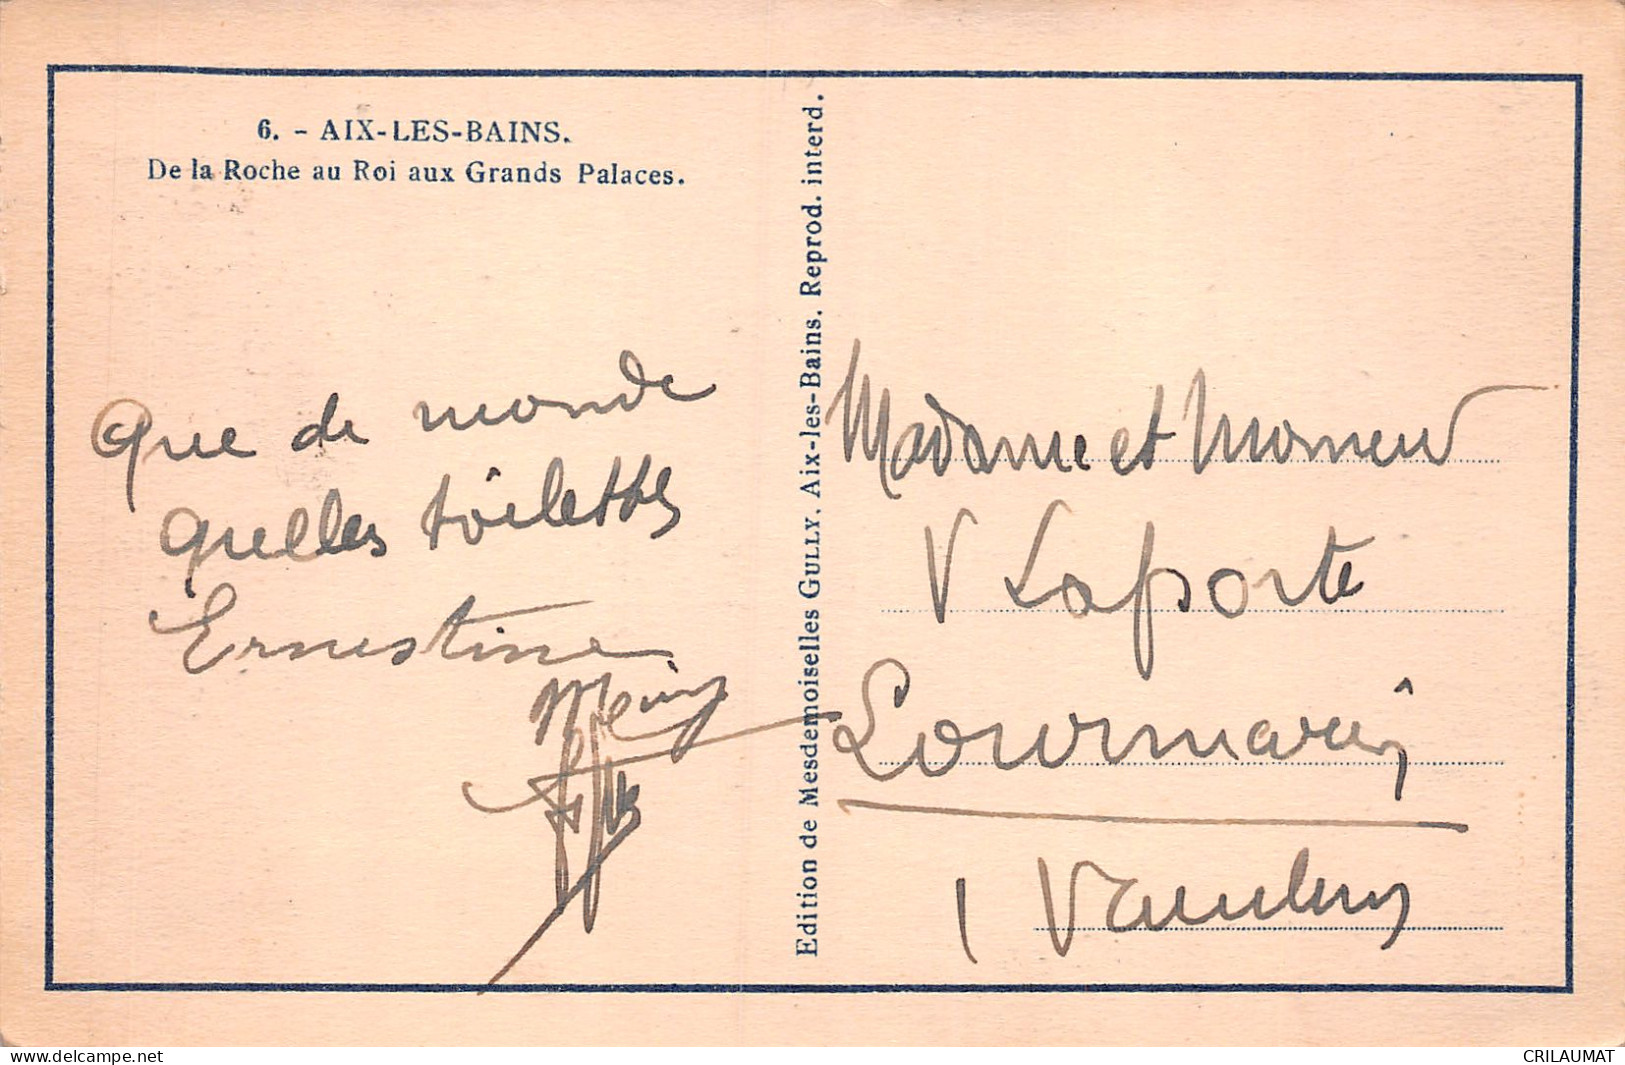 6. - AIX-LES-BAINS.
De la Roche au Roi aux Grands Palaces.
Que de monde
quelles toilettes
Ernestine
Edition de Mesdemoiselles GULLY. Aix-les-Bains. Reprod. interd.
Madame et Monsieur
V Laporte
Lourmarin
Vaucluse
www.delcampe.net
CRILAUMAT